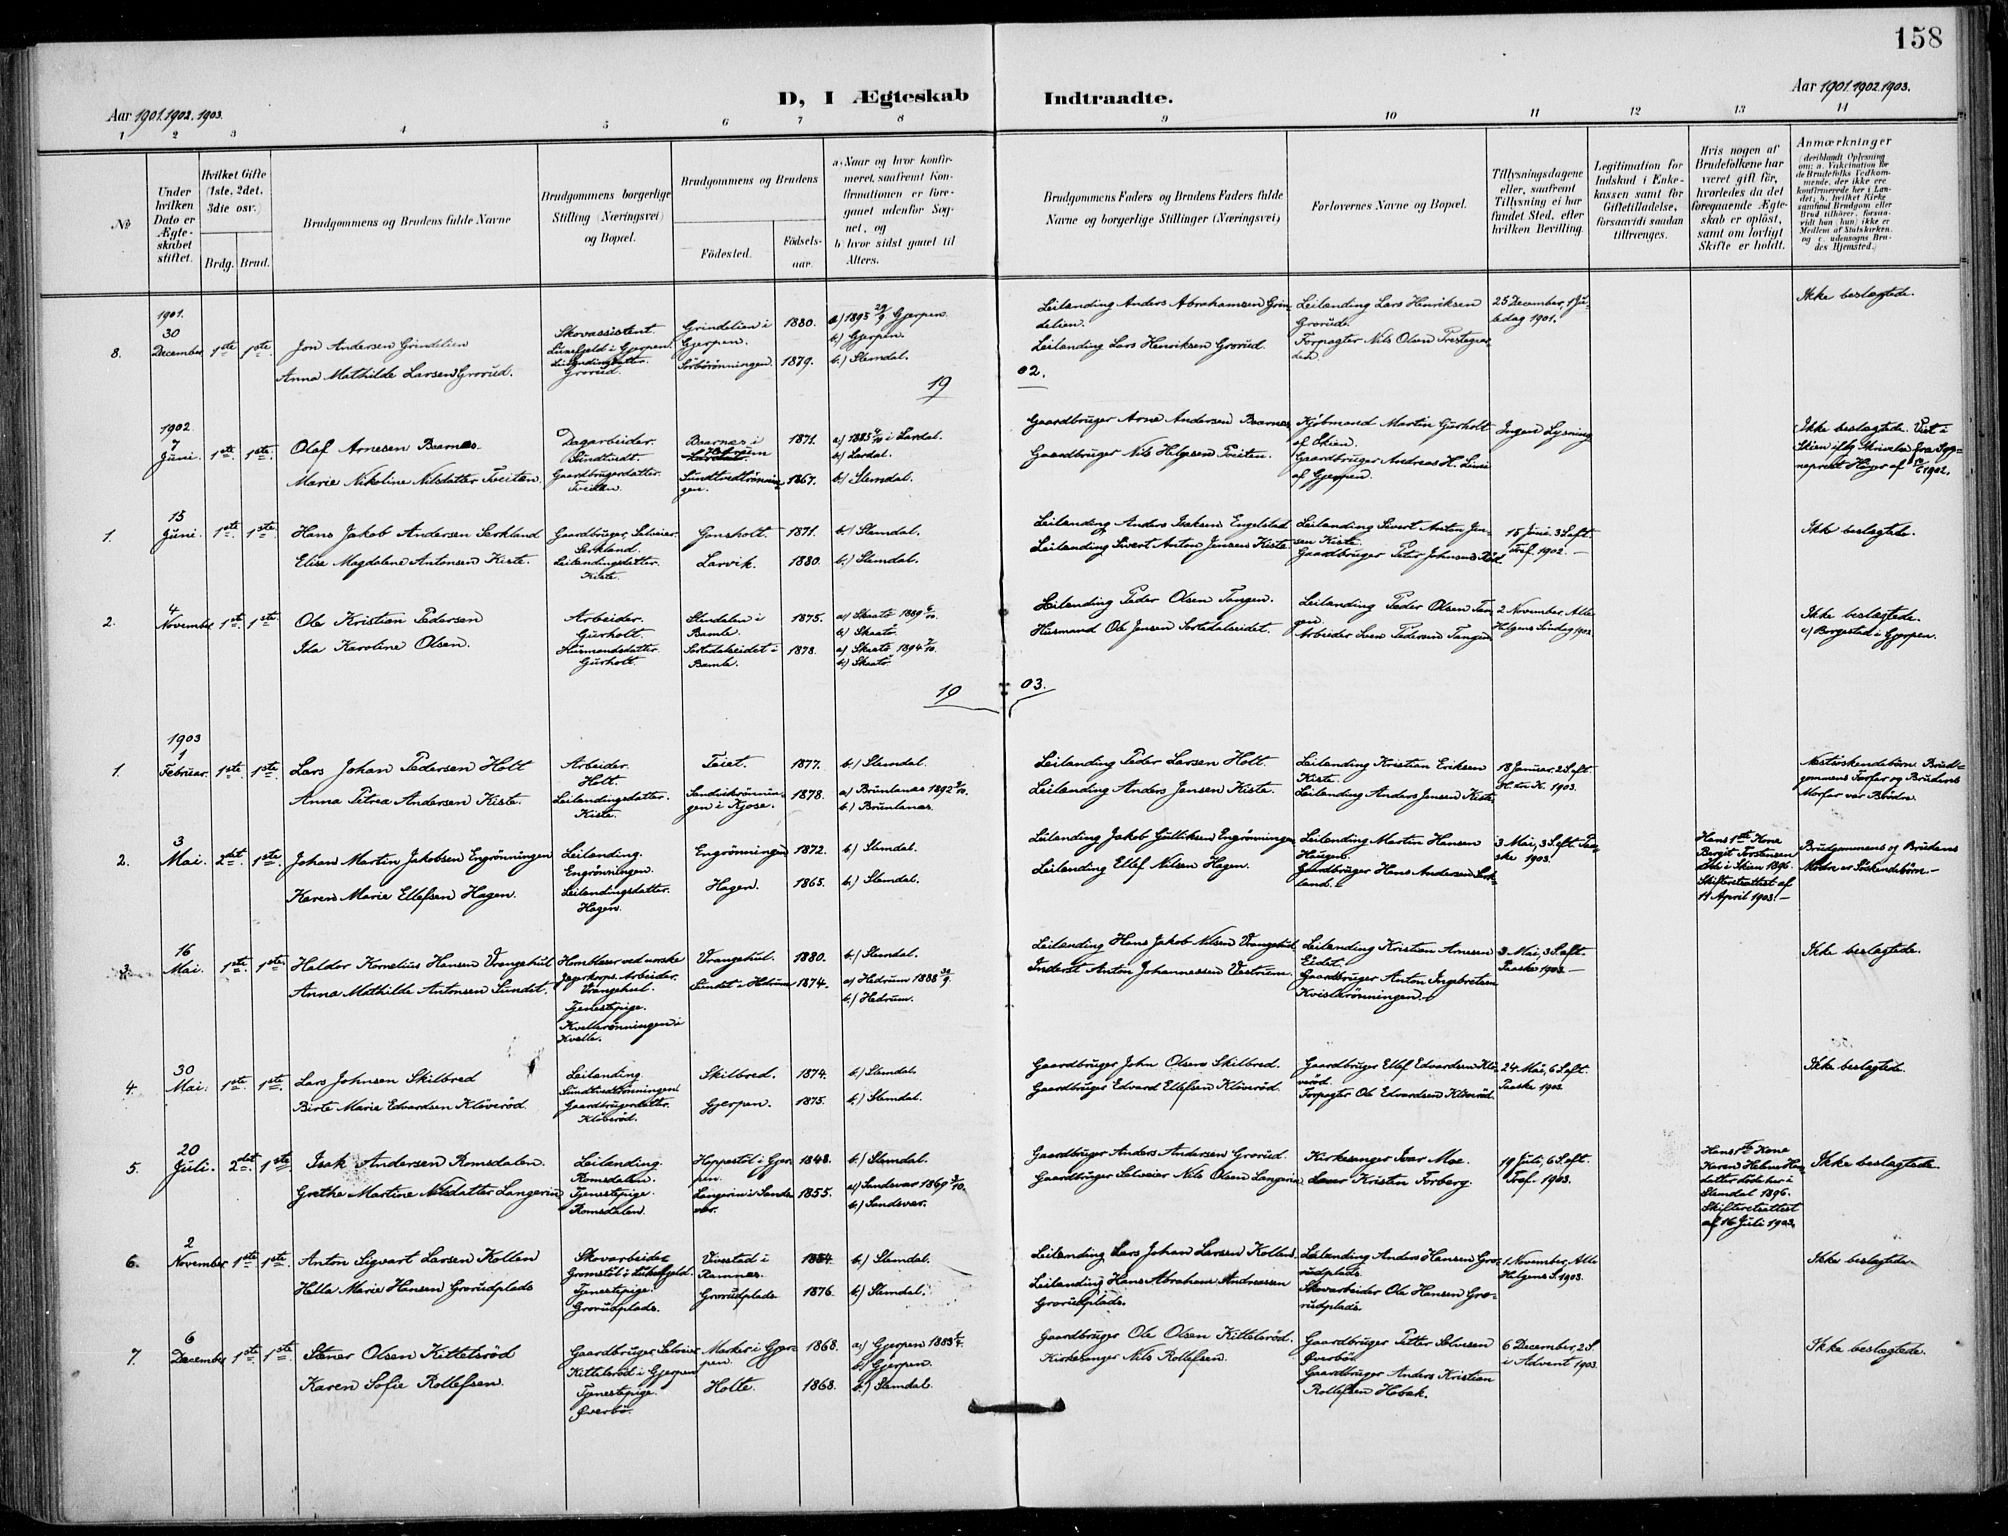 158
D, I Ægteskab Indtraadte.
Aar 1901. 1902. 1903.
Aar 1901. 1902. 1903.
1 2 3 4 5 6 7 8 9 10 11 12 13 14
No
Under hvilken Dato er Ægteskabet stiftet.
Hvilket Gifte (1ste, 2det, 3die osv.)
Brdg. Brud.
Brudgommens og Brudens fulde Navne
Brudgommens borgerlige Stilling (Næringsvei) og Bopæl.
Brudgommens og Brudens
Födested.
Födselsaar.
a) Naar og hvor konfirmeret, saafremt Konfirmationen er foregaaet udenfor Sognet, og
b) hvor sidst gaaet til Alters.
Brudgommens Faders og Brudens Faders fulde Navne og borgerlige Stillinger (Næringsvei)
Forlovernes Navne og Bopæl.
Tillysningsdagene eller, saafremt Tillysning ei har fundet Sted, efter hvilken Bevilling.
Legitimation for Indskud i Enkekassen samt for Giftetilladelse, forsaavidt saadan tiltrænges.
Hvis nogen af Brudefolkene har været gift før, hvorledes da det foregaaende Ægteskab er oplöst, samt om lovligt Skifte er holdt.
Anmærkninger
1901.
30
8. December 1ste 1ste Jon Andersen Grindelien
Skovassistent
Luxefjeld i Gjerpen.
Grindelien i Gjerpen. 1880. a) 1895 29/9 Gjerpen.
b) Gjerpen.
Leilænding Anders Abrahamsen Grindelien.
Leilænding Lars Henriksen Grorud.
25 December, 1 Juledag 1901.
Ikke beslægtede.
Anna Mathilde Larsen Grorud.
Leilændingsdatter. Grorud.
Sörbörönningen. 1879. b.) Slemdal.
Leilænding Lars Henriksen Grorud.
Forpagter Nils Olsen
19 02.
1902
7
Juni 1ste 1ste Olaf Arnesen Baarnes
Dagarbeider.
Sundtvedt
Baarnes i 1871. a) 1885 i Lardal.
b) Lardal.
Gaardbruger Arne Andersen Baarnes
Kjöbmand Martin Gurholt af Skien.
Ingen Lysning
Ikke beslægtede. Viet i Skien
1902.
Marie Nikoline Nilsdatter Tveitan.
Gaardbrugerdatter.
Tveiten.
Sundtvedtrönningen. 1867. b.) Slemdal.
Gaardbruger Nils Helgesen Tveiten.
Gaardbruger Andreas H. Limi af Gjerpen.
15
1. Juni. 1ste 1ste Hans Jakob Andersen Serkland
Gaardbruger, Selveier.
Serkland.
Gonsholt. 1871. b.) Slemdal.
Leilænding Anders Isaksen Engelstad
Leilænding Sivert Anton Jensen Kiste.
15 Juni, 3 S. eft. Tref. 1902.
Ikke beslægtede.
Elise Magdalene Antonsen Kiste.
Leilændingsdatter.
Kiste.
Larvik. 1880. b.) Slemdal.
Leilænding Sivert Anton Jensen Kiste.
Gaardbruger Peter Johnsen
4
2. November 1ste 1ste Ole Kristian Pedersen
Arbeider.
Gurholt.
Stendalen i Bamle. 1875. a) Skaatö 1889 6/10.
b) Skaatö.
Leilænding Peder Olsen Tangen.
Leilænding Peder Olsen Tangen
2 November, Alle Helgens Söndag 1902.
Ikke beslægtede.
c) Borgestad i Gjerpen.
Ida Karoline Olsen.
Husmandsdatter.
Gurholt.
Sortedalseidet i Bamle. 1878. a) Skaatö 1894 7/10.
b.) Skaatö.
Husmand Ole Jensen Sortedalseidet.
Arbeider Sven Pedersen Tangen
19 03.
1903
1
1. Februar. 1ste 1ste Lars Johan Pedersen Holt
Arbeider.
Holt.
Teiet. 1877. b.) Slemdal.
Leilænding Peder Larsen Holt.
Leilænding Kristian Eriksen Kiste.
18 Januar. 2 S. eft. H. tre K. 1903.
Næstsöskendebörn. Brudgommens Farfar og Brudens Morfar var Brödre.
Anna Petrea Andersen Kiste.
Leilændingsdatter.
Kiste.
Sandvikrönningen i Kjose. 1878. a) Brunlanes 1892 2/10.
b.) Brunlanes.
Leilænding Anders Jensen Kiste.
Leilænding Anders Jensen Kiste.
3
2. Mai. 2det 1ste Johan Martin Jakobsen Engrönningen
Leilænding.
Engrönningen.
Engrönningen 1872. b.) Slemdal.
Leilænding Jakob Gulliksen Engrönningen
Leilænding Martin Hansen Haugen.
3 Mai, 3 S. eft. Paaske 1903.
Hans 1ste Kone Bergit Torstensen döde i Skien 1896. Skifteretsattest af 17 April 1903.
Brudgommens og Brudens Mödre er Söskendebörn.
Karen Marie Ellefsen Hagen.
Leilændingsdatter.
Hagen.
Hagen. 1865. b.) Slemdal.
Leilænding Ellef Nilsen Hagen.
Gaardbruger Hans Andersen Serkland.
16
3. Mai. 1ste 1ste Haldor Kornelius Hansen Vrangehul
Hornblæser ved norske Jægerkorps. Arbeider.
Vrangehul.
Vrangehul. 1880. b.) Slemdal.
Leilænding Hans Jakob Nilsen Vrangehul.
Leilænding Kristian Arnesen Eidet.
3 Mai, 3 S. eft. Paaske 1903.
Ikke beslægtede.
Anna Mathilde Antonsen Sundet.
Tjenestepige.
Kvelle.
Sundet i Hedrum 1874. a) Hedrum 1888 30/9.
b.) Hedrum.
Inderst Anton Johannessen Vestrum.
Gaardbruger Anton Ingebretsen Kviströnningen.
30
4. Mai. 1ste 1ste Lars Johnsen Skilbred
Leilænding.
Sundtvedtrönningen.
Skilbred. 1874. b.) Slemdal.
Gaardbruger John Olsen Skilbred.
Gaardbruger Ellef Edvardsen Klöveröd.
24 Mai, 6 S. eft. Paaske 1903
Ikke beslægtede.
Birte Marie Edvardsen Klöveröd.
Gaardbrugerdatter.
Klöveröd.
Gjerpen. 1875. b.) Slemdal.
Gaardbruger Edvard Ellefsen Klöveröd.
Forpagter Ole Edvardsen Klöveröd.
20
5. Juli. 2det 1ste Isak Andersen Romsdalen.
Leilænding.
Romsdalen.
Heppestöl i Gjerpen. 1848. b.) Slemdal.
Gaardbruger Anders Andersen Grorud.
Kirkesanger Ivar Moe.
19 Juli, 6 S. eft. Tref. 1903.
Hans 1ste Kone Karen Helene Hansdatter döde her i Slemdal 1896. Skifteretsattest af 16 Juli 1903.
Ikke beslægtede.
Grethe Martine Nilsdatter Langerin
Tjenestepige.
Romsdalen.
Langerin i Sandsvær. 1855. a) Sandsvær 1869 3/10.
b.) Sandsvær.
Gaardbruger Selveier Nils Olsen Langerin
Lærer Kristen Forberg.
2
6. November 1ste 1ste Anton Sigvart Larsen Kollen
Skovarbeider
Gromstöl i Luksefjeld.
Vivestad i Ramnæs. 1884. b.) Slemdal.
Leilænding Lars Johan Larsen Kollen.
Leilænding Anders Hansen Grorudplads.
1 November, Alle Helgens S. 1903.
Ikke beslægtede
Hella Marie Hansen Grorudplads
Tjenestepige.
Grorudplads.
Grorudplads 1876. b.) Slemdal.
Leilænding Hans Abraham Andreasen Grorudplads.
Skovarbeider Ole Hansen Grorudplads
6
7. December 1ste 1ste Stener Olsen Kittelsröd
Gaardbruger, Selveier
Kittelsröd i Gjerpen
Marker i Gjerpen. 1868. a) Gjerpen 1883
b) Gjerpen.
Gaardbruger Ole Olsen Kittelsröd.
Gaardbruger Petter Solvesen Överbö.
6 December, 2 S. i Advent 1903.
Ikke beslægtede.
Karen Sofie Rollefsen.
Tjenestepige.
Överbö.
Holte. 1868. b.) Slemdal.
Kirkesanger Nils Rollefsen.
Gaardbruger Anders Kristian Rollefsen Hobæk.